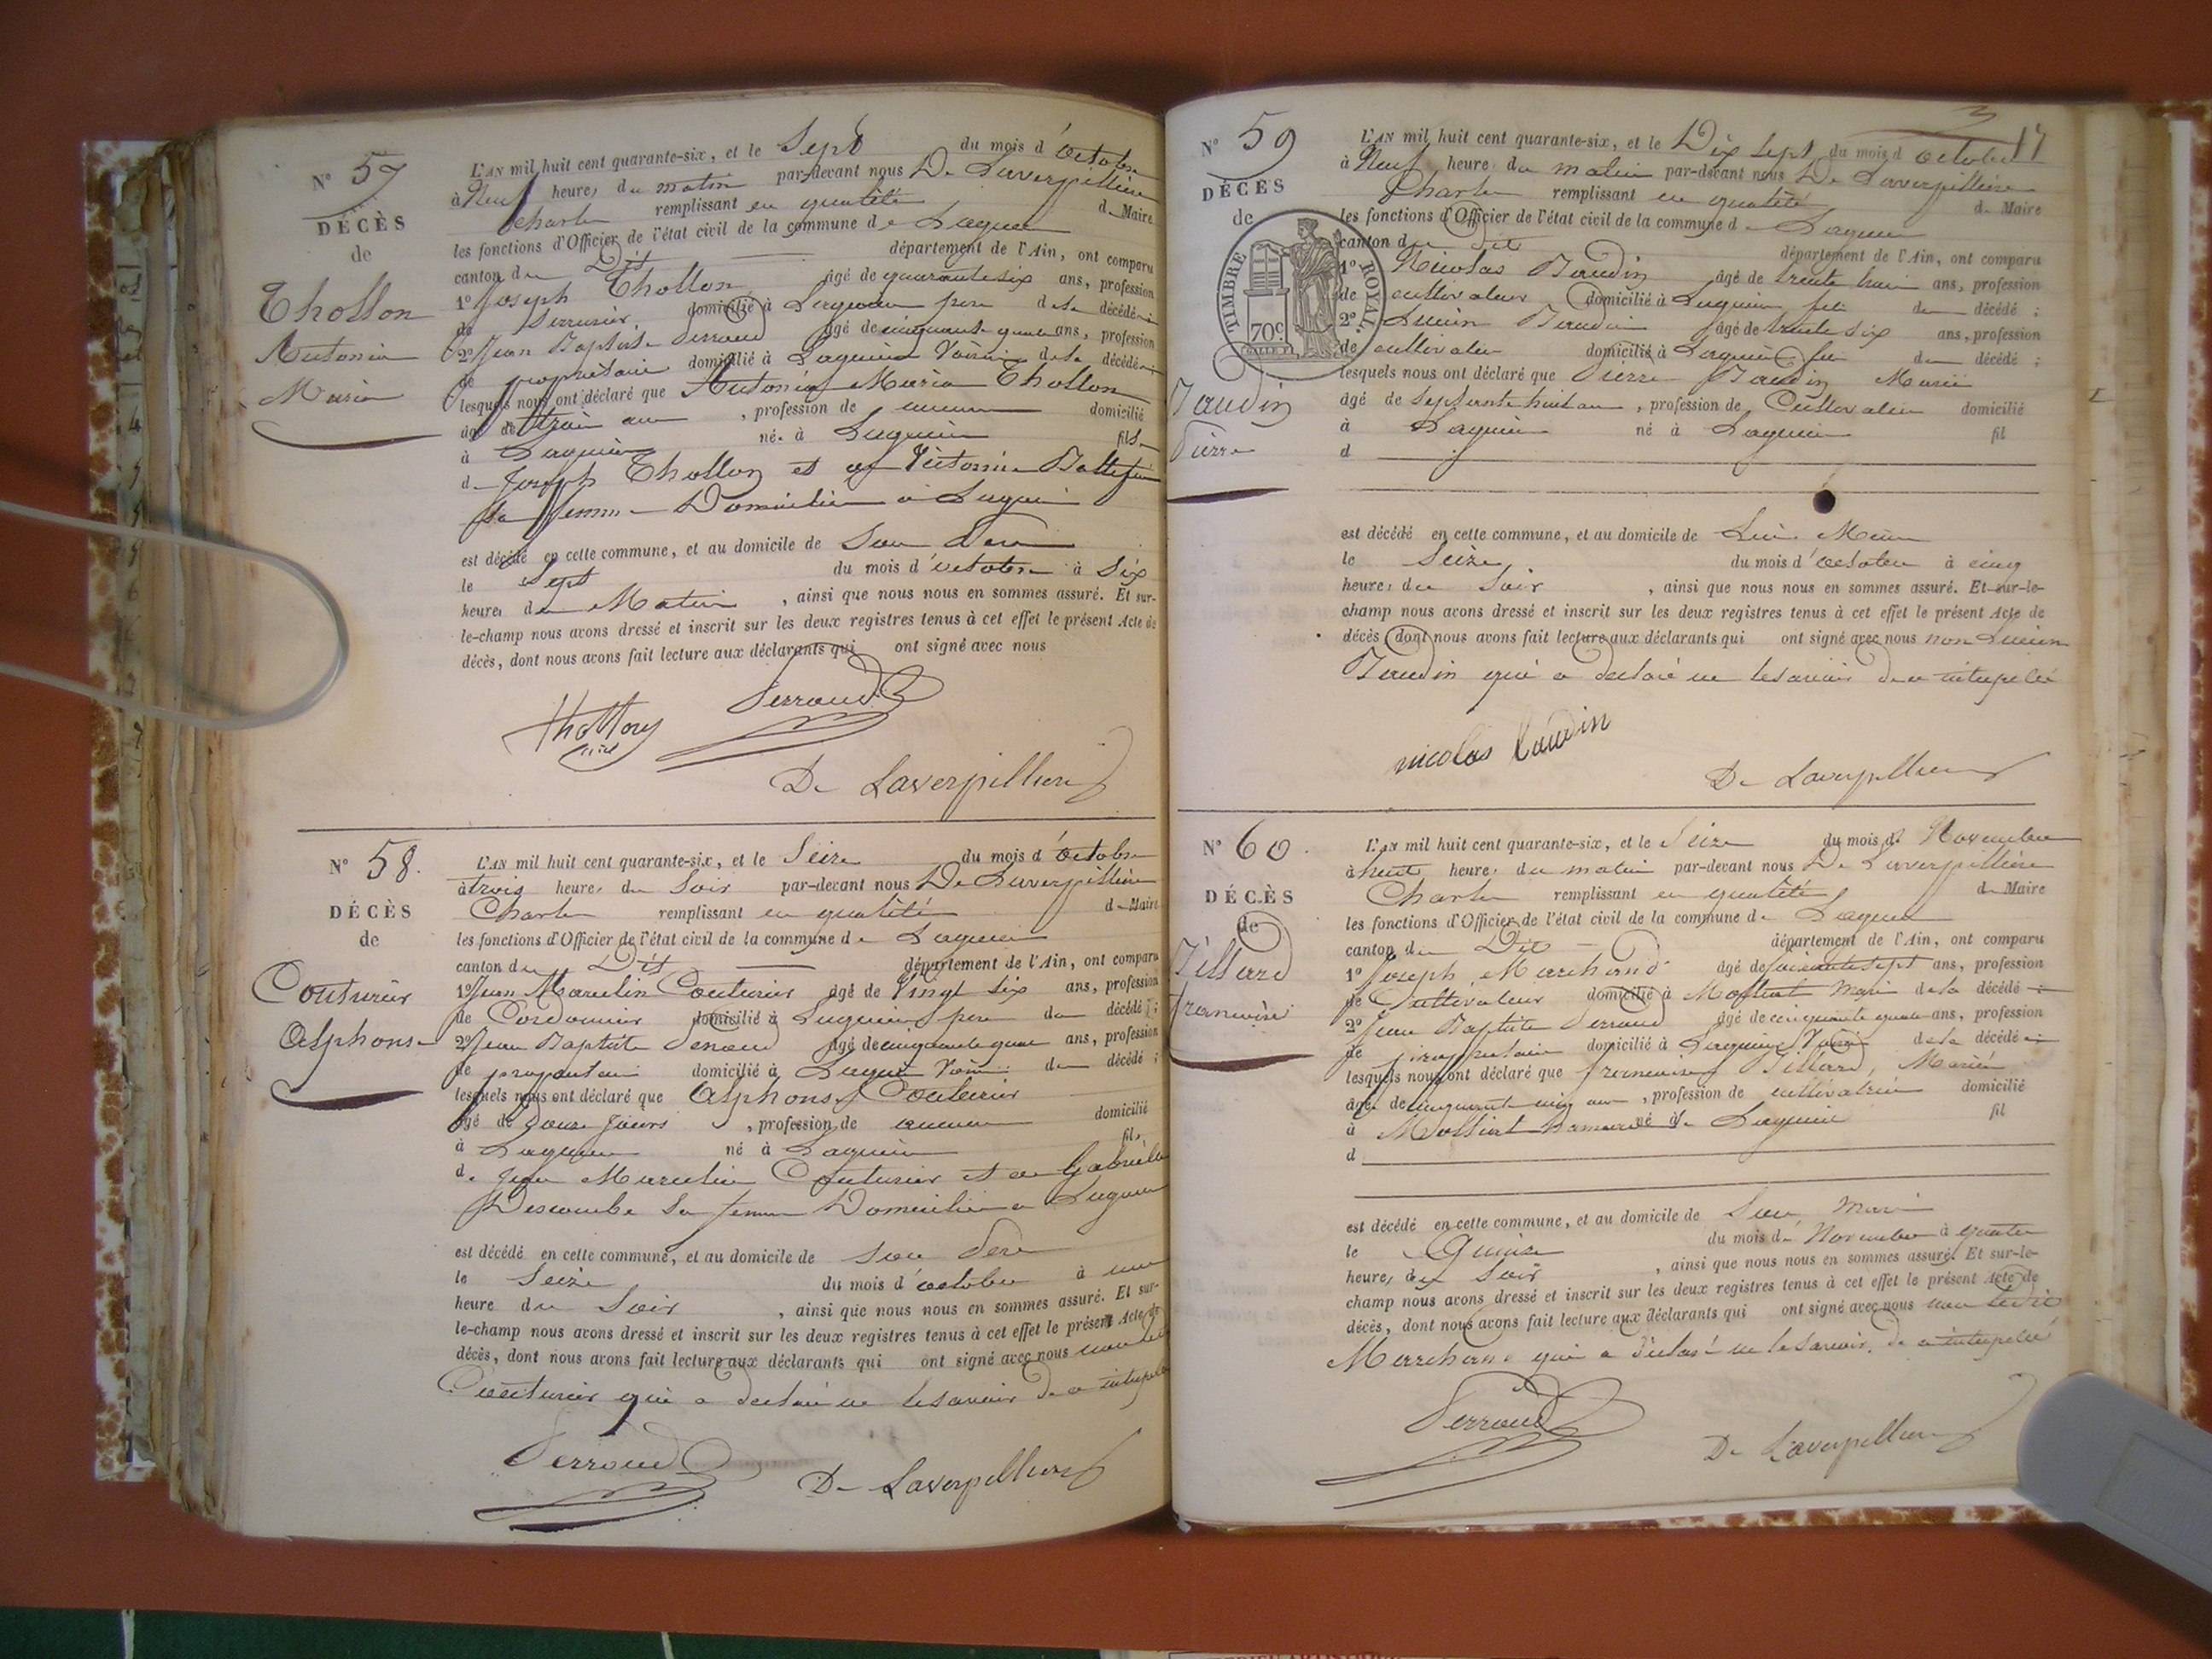 N° 57
DÉCÈS
de
Thollon
Antonia
Maria
L'AN mil huit cent quarante-six, et le Sept du mois d'octobre
à Neuf heures du matin par-devant nous De Laverpillière
Charles remplissant en qualité de Maire
les fonctions d'Officier de l'état civil de la commune de Lagnieu
canton du Dit département de l'Ain, ont comparu
1° Joseph Thollon âgé de quarante six ans, profession
de Serrurier domicilié à Lagnieu père de la décédée
2° Jean Baptiste Serraud âgé de cinquante quatre ans, profession
de propriétaire domicilié à Lagnieu Voisin de la décédée
lesquels nous ont déclaré que Antonia Maria Thollon
âgé de trois ans, profession de aucune domicilié
à Lagnieu né à Lagnieu fille
de Joseph Thollon et de
Sa femme Domiciliée à Lagnieu
est décédé en cette commune, et au domicile de Son Père
le Sept du mois d'octobre à Six
heures du Matin, ainsi que nous nous en sommes assuré. Et sur-
le-champ nous avons dressé et inscrit sur les deux registres tenus à cet effet le présent Acte de
décès, dont nous avons fait lecture aux déclarants qui ont signé avec nous
Thollon Serraud
De Laverpilliere
N° 58.
DÉCÈS
de
Couturier
Alphonse
L'AN mil huit cent quarante-six, et le Seize du mois d'octobre
à trois heures du Soir par-devant nous De Laverpillière
Charles remplissant en qualité de Maire
les fonctions d'Officier de l'état civil de la commune de Lagnieu
canton du Dit département de l'Ain, ont comparu
1° Jean Marcelin Couturier âgé de Vingt six ans, profession
de Cordonnier domicilié à Lagnieu père du décédé;
2° Jean Baptiste Serraud âgé de cinquante quatre ans, profession
de propriétaire domicilié à Lagnieu Voisin du décédé;
lesquels nous ont déclaré que Alphonse Couturier
âgé de Douze Jours, profession de aucune domicilié
à Lagnieu né à Lagnieu fils
de Jean Marcelin Couturier et de Gabrielle
Descombe Sa femme Domiciliée à Lagnieu
est décédé en cette commune, et au domicile de Son Père
le Seize du mois d'octobre à une
heure du Soir, ainsi que nous nous en sommes assuré. Et sur-
le-champ nous avons dressé et inscrit sur les deux registres tenus à cet effet le présent Acte de
décès, dont nous avons fait lecture aux déclarants qui ont signé avec nous non le dit
Couturier qui a déclaré ne le savoir de ce interpellé
Serraud De Laverpilliere
17
N° 59
DÉCÈS
de
TIMBRE ROYAL
70c
Baudin
Pierre
L'AN mil huit cent quarante-six, et le Dix Sept du mois d'octobre
à Neuf heures du matin par-devant nous De Laverpillière
Charles remplissant en qualité de Maire
les fonctions d'Officier de l'état civil de la commune de Lagnieu
canton du dit département de l'Ain, ont comparu
1° Nicolas Baudin âgé de trente huit ans, profession
de cultivateur domicilié à Lagnieu fils du décédé;
2° Lucien Baudin âgé de trente six ans, profession
de cultivateur domicilié à Lagnieu fils du décédé;
lesquels nous ont déclaré que Pierre Baudin Marié
âgé de Septante huit ans, profession de Cultivateur domicilié
à Lagnieu né à Lagnieu fil
d
est décédé en cette commune, et au domicile de Lui Même
le Seize du mois d'octobre à cinq
heures du Soir, ainsi que nous nous en sommes assuré. Et sur-le-
champ nous avons dressé et inscrit sur les deux registres tenus à cet effet le présent Acte de
décès dont nous avons fait lecture aux déclarants qui ont signé avec nous non Lucien
Baudin qui a déclaré ne le savoir de ce interpellé
nicolas baudin
De Laverpilliere
N° 60.
DÉCÈS
de
Billard
francoise
L'AN mil huit cent quarante-six, et le Seize du mois de Novembre
à huit heures du matin par-devant nous De Laverpillière
Charles remplissant en qualité de Maire
les fonctions d'Officier de l'état civil de la commune de Lagnieu
canton du Dit département de l'Ain, ont comparu
1° Joseph Marchand âgé de soixante sept ans, profession
de Cultivateur domicilié à Mari de la décédée
2° Jean Baptiste Serraud âgé de cinquante quatre ans, profession
de propriétaire domicilié à Lagnieu Voisin de la décédée
lesquels nous ont déclaré que francoise Billard, Mariée
âgé de cinquante cinq ans, profession de cultivatrice domicilié
à hameau de Lagnieu fil
d
est décédé en cette commune, et au domicile de Son Mari
le Quinze du mois de Novembre à quatre
heures du Soir, ainsi que nous nous en sommes assuré. Et sur-le-
champ nous avons dressé et inscrit sur les deux registres tenus à cet effet le présent Acte de
décès, dont nous avons fait lecture aux déclarants qui ont signé avec nous non le dit
Marchand qui a déclaré ne le savoir de ce interpellé
Serraud
De Laverpilliere